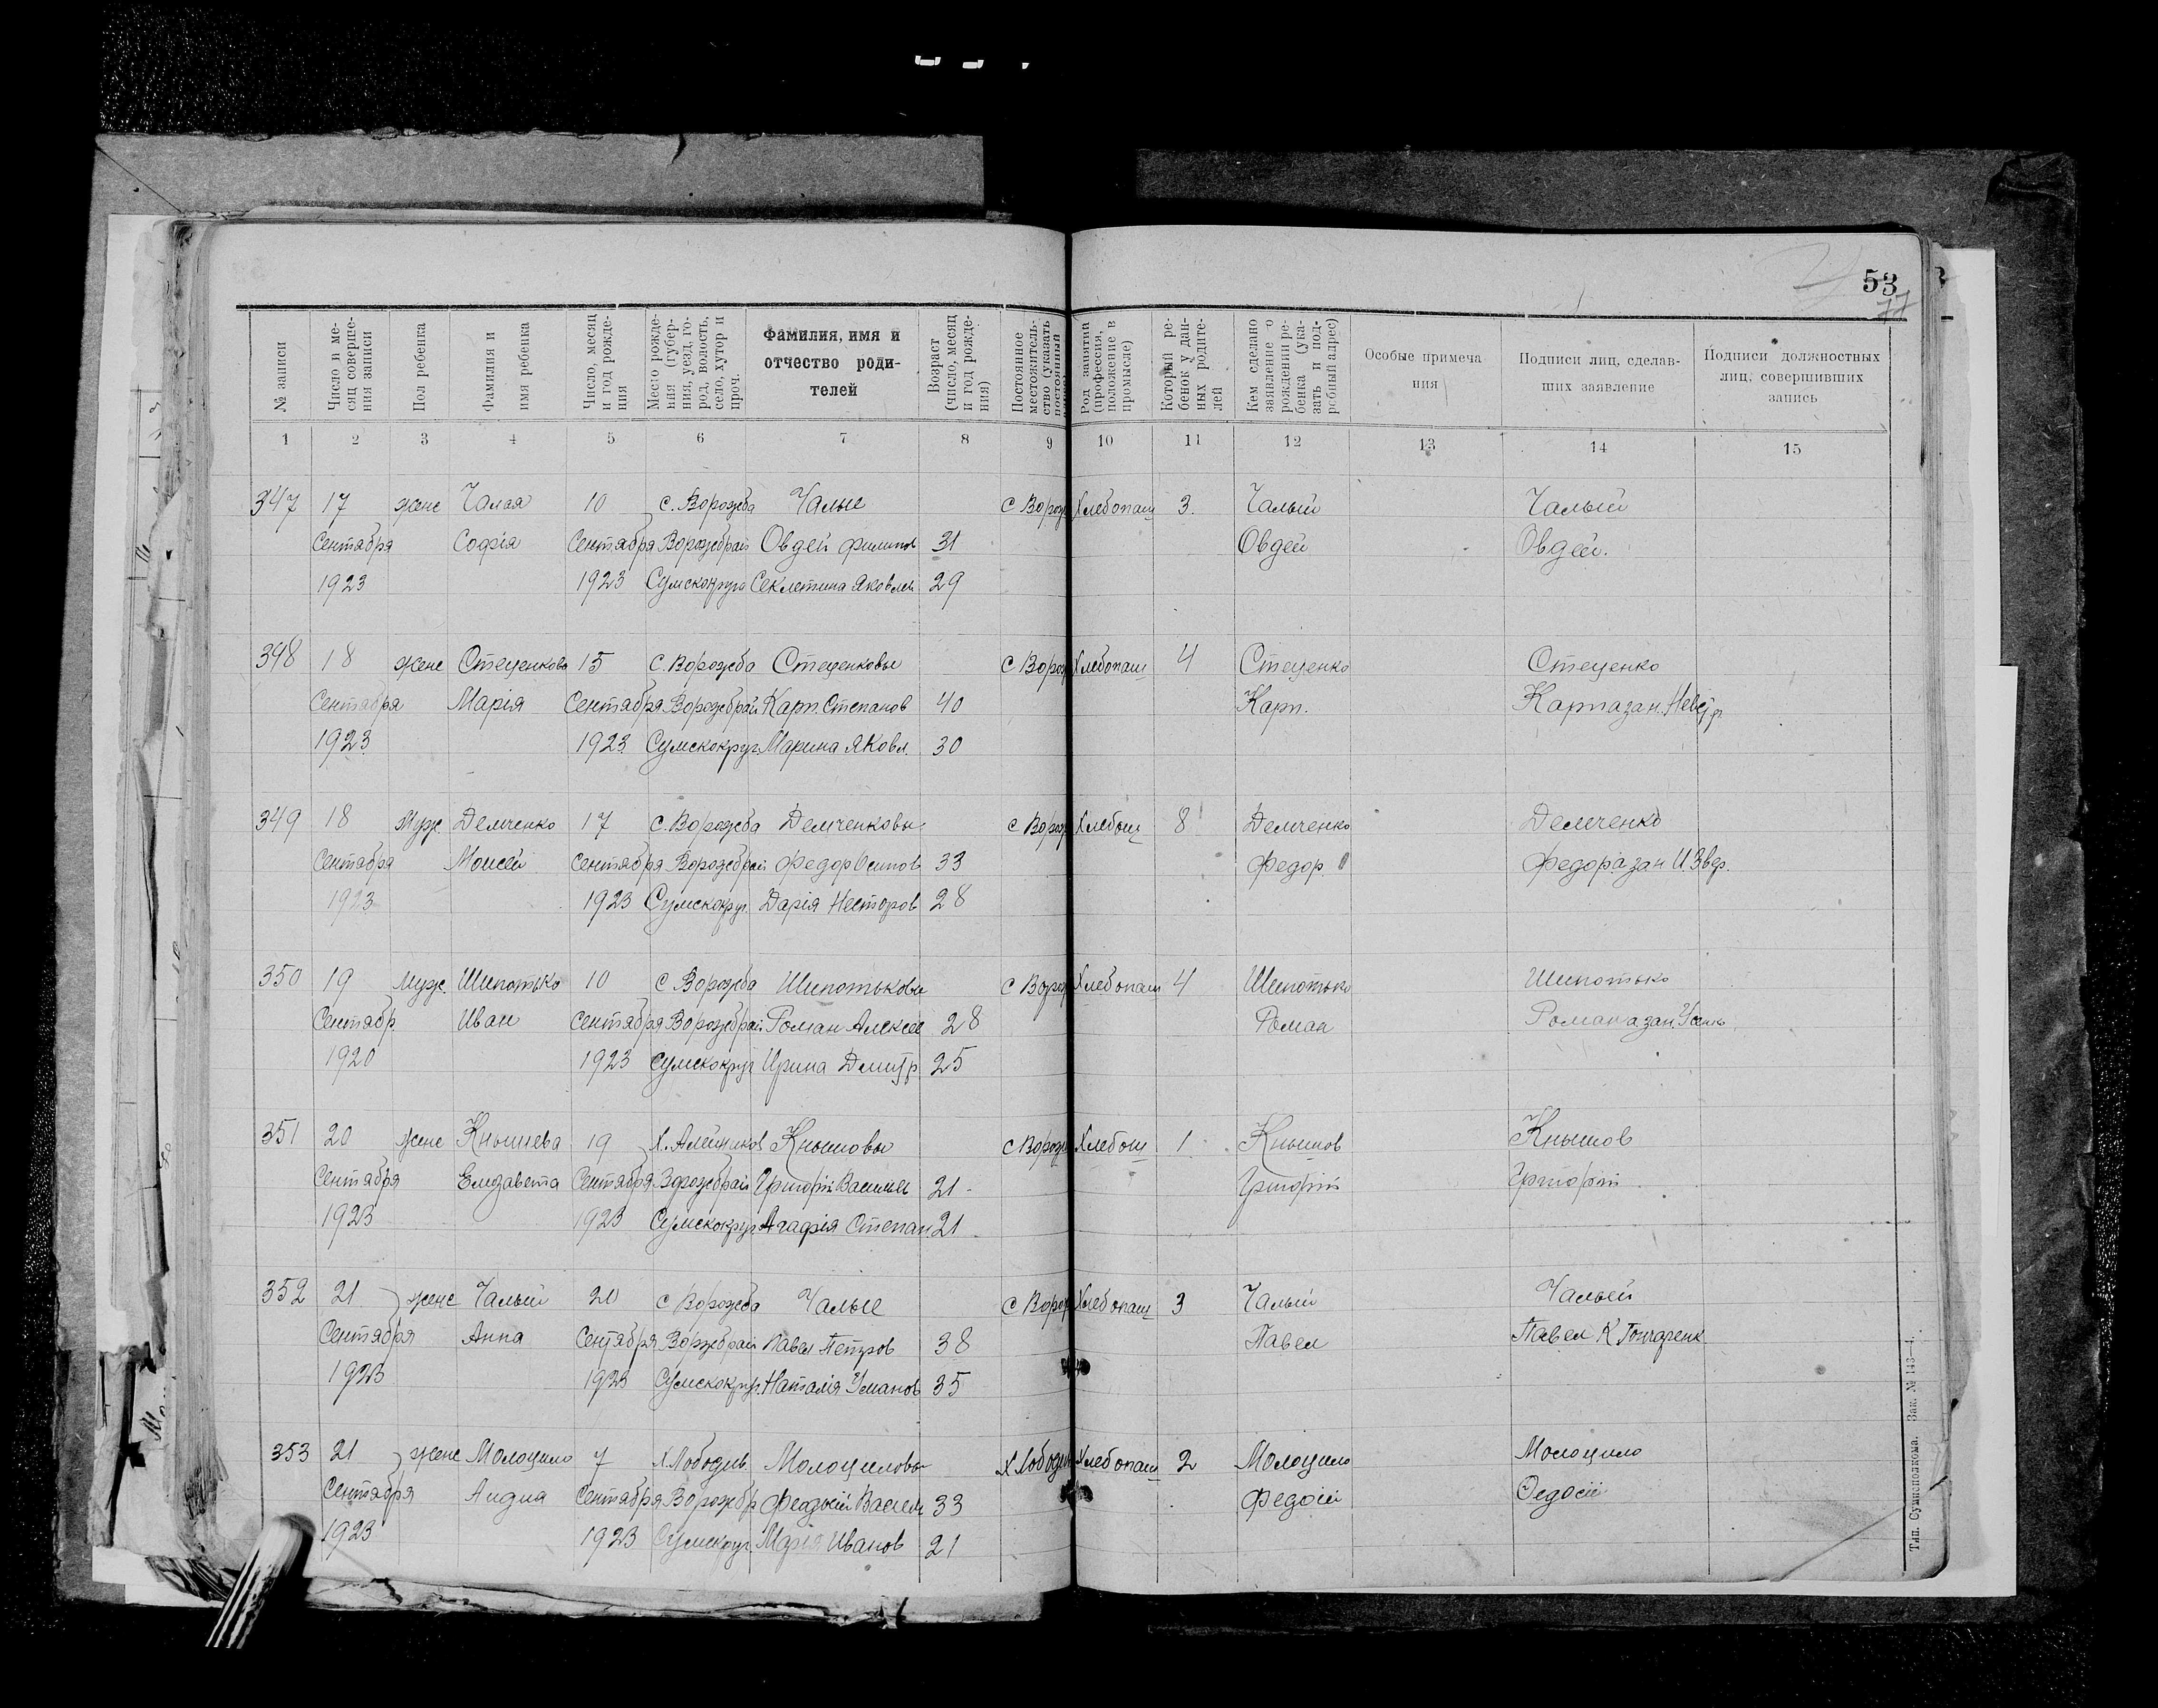 53
77
№ записи
Число и месяц совершения записи
Пол ребенка
Фамилия и имя ребенка
Число, месяц и год рождения
Место рождения (губерния, уезд, город, волость, село, хутор и проч.
Фамилия, имя и отчество родителей
Возраст (число, месяц и год рождения)
Постоянное местожительство (указать постоянный
Род занятий (профессия, положение в промысле)
Который ребенок у данных родителей
Кем сделано заявление о рождении ребенка (указать и подробный адрес)
Особые примечания
Подписи лиц, сделавших заявление
Подписи должностных лиц, совершивших запись
1 2 3 4 5 6 7 8 9 10 11 12 13 14 15
347 17 жене Чалая 10 с. Ворожба Чалые с Ворож Хлебопаш 3. Чалый Чалый
Сентября Софія Сентября Ворожбрай Овдей Филипов 31 Овдей Овдей.
1923 1923 Сумскокруга Секлетина Яковлев 29
348 18 жене Стеценкова 15 с. Ворожба Стеценковы с Ворож Хлебопаш 4 Стеценко Стеценко
Сентября Марія Сентября Ворожбрай Карп. Степанов 40 Карп. Карпазан.
1923 1923 Сумскокруг. Марина Яковл. 30
349 18 Муж. Демченко 17 с. Ворожба Демченковы с Ворож Хлебопш 8 Демченко Демченко
Сентября Моисей Сентября Ворожбрай Федор Осипов 33 Федор Федоразан
1923 1923 Сумскокруг. Дарія Несторов 28
350 19 Муж. Шипотько 10 с Ворожба Шипотьковы с Ворож Хлебопаш 4 Шипотько Шипотько
Сентябр Иван Сентября Ворожбрай Роман Алексее 28 Роман Роман азан
1920 1923 Сумскокруг Ирина Дмитр 25
351 20 Жене Кнышева 19 Х. Алейников Кнышовы с Ворож Хлебопш 1 Кнышов Кнышов
Сентября Елизавета Сентября Ворожбрай Григорій Василье 21 Григорій Григорій
1923 1923 Сумскокруг. Агафія Степан. 21
352 21 жене Чалый 20 с Ворожба Чалые с Ворож Хлебопаш 3 Чалый Чалый
Сентября Анна Сентября Воржбрай Павел Петров 38 Павел Павел К Гончаренк
1923 1923 Сумскокруг. Наталія Уманов 35
353 21 жене Молоцило 7 х Лободив Молоциловы х Лободив Хлебопаш 2 Молоцило Молоцило
Сентября Сентября Ворожбр Василь 33 Федосій Федосій
1923 1923 Сумскруг. Марія Иванов 21
Тип. Сумисполкома. Зак. № 143—4